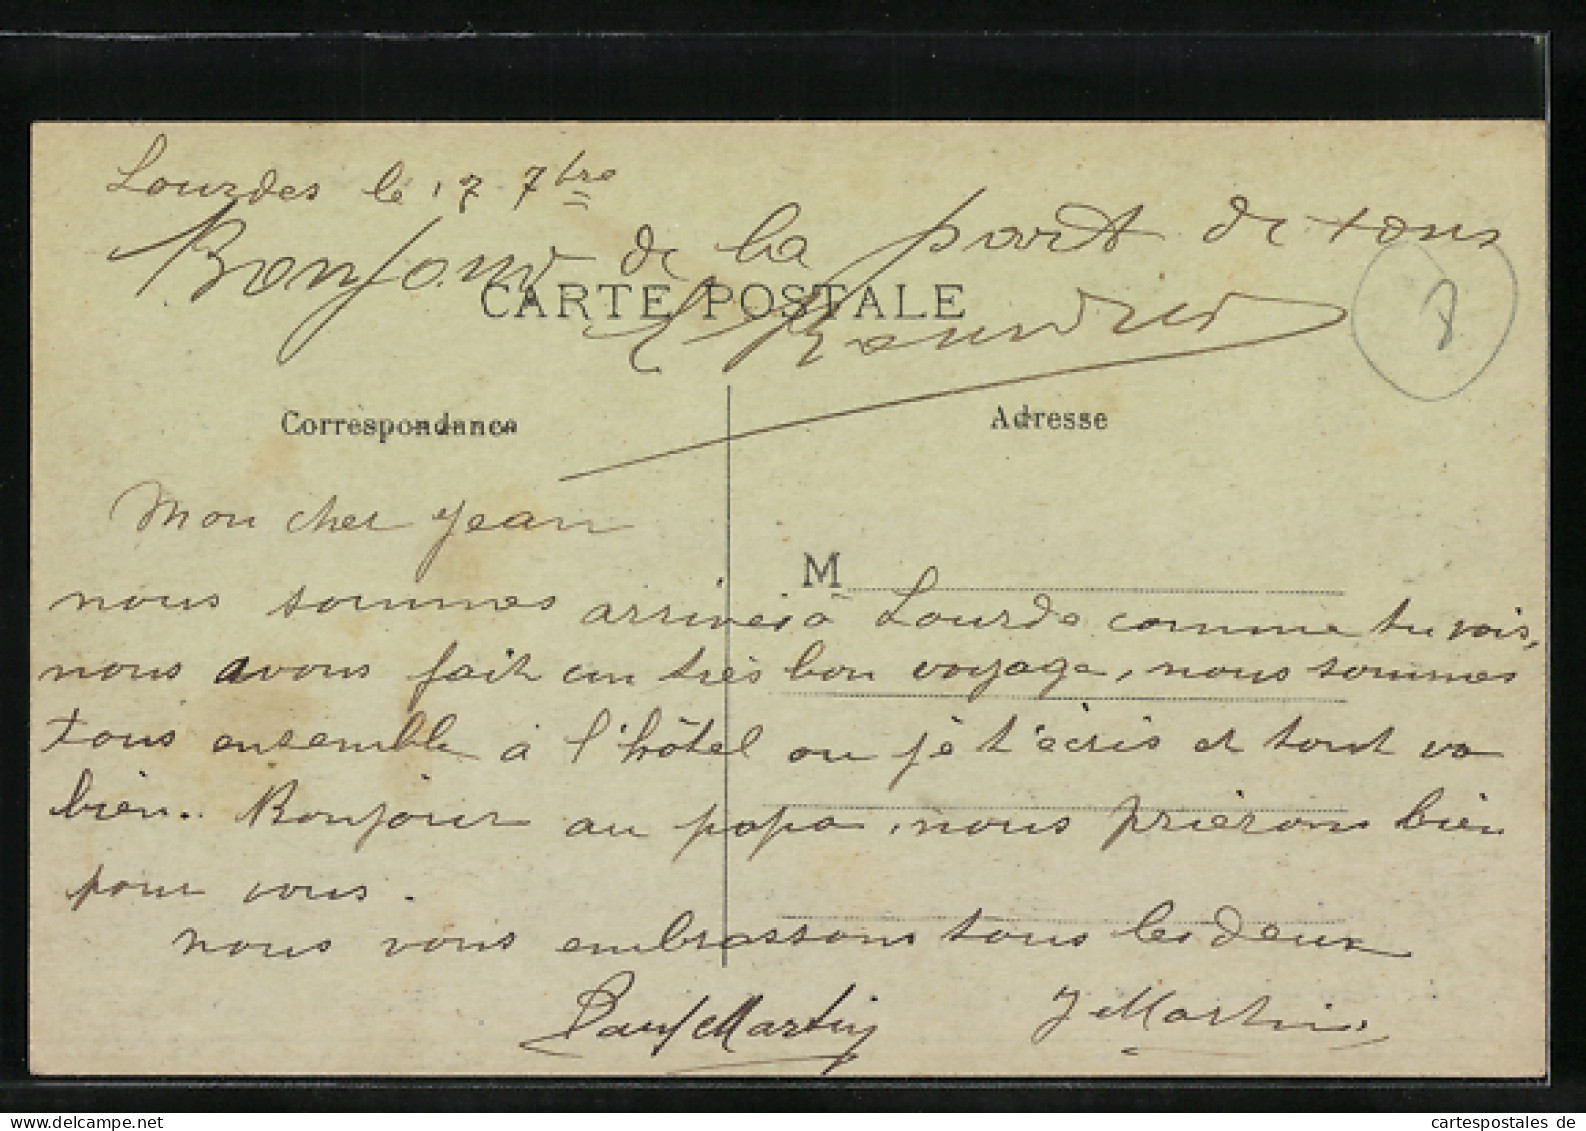 Lourdes le 17 7bre
Bonjour de la part de tous
CARTE POSTALE
Correspondance
Adresse
8
Mon cher Jean
M
nous sommes arrivés à Lourde comme tu vois,
nous avons fait un très bon voyage, nous sommes
tous ensemble à l'hôtel ou je t'écris et tout va
bien.. Bonjour au papa, nous prièrons bien
pour vous.
nous vous embrassons tous les deux
Paul Martin J Martin
cartespostales de